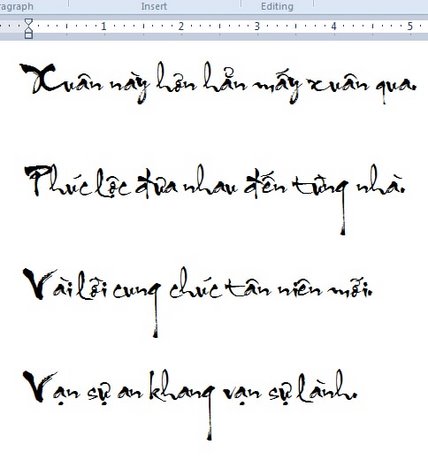 aragraph Insert Editing
1 2 3 4 5
Xuân này hơn hẳn mấy xuân qua.
Phúc lộc đưa nhau đến từng nhà.
Vài lời cung chúc tân niên mới.
Vạn sự an khang vạn sự lành.